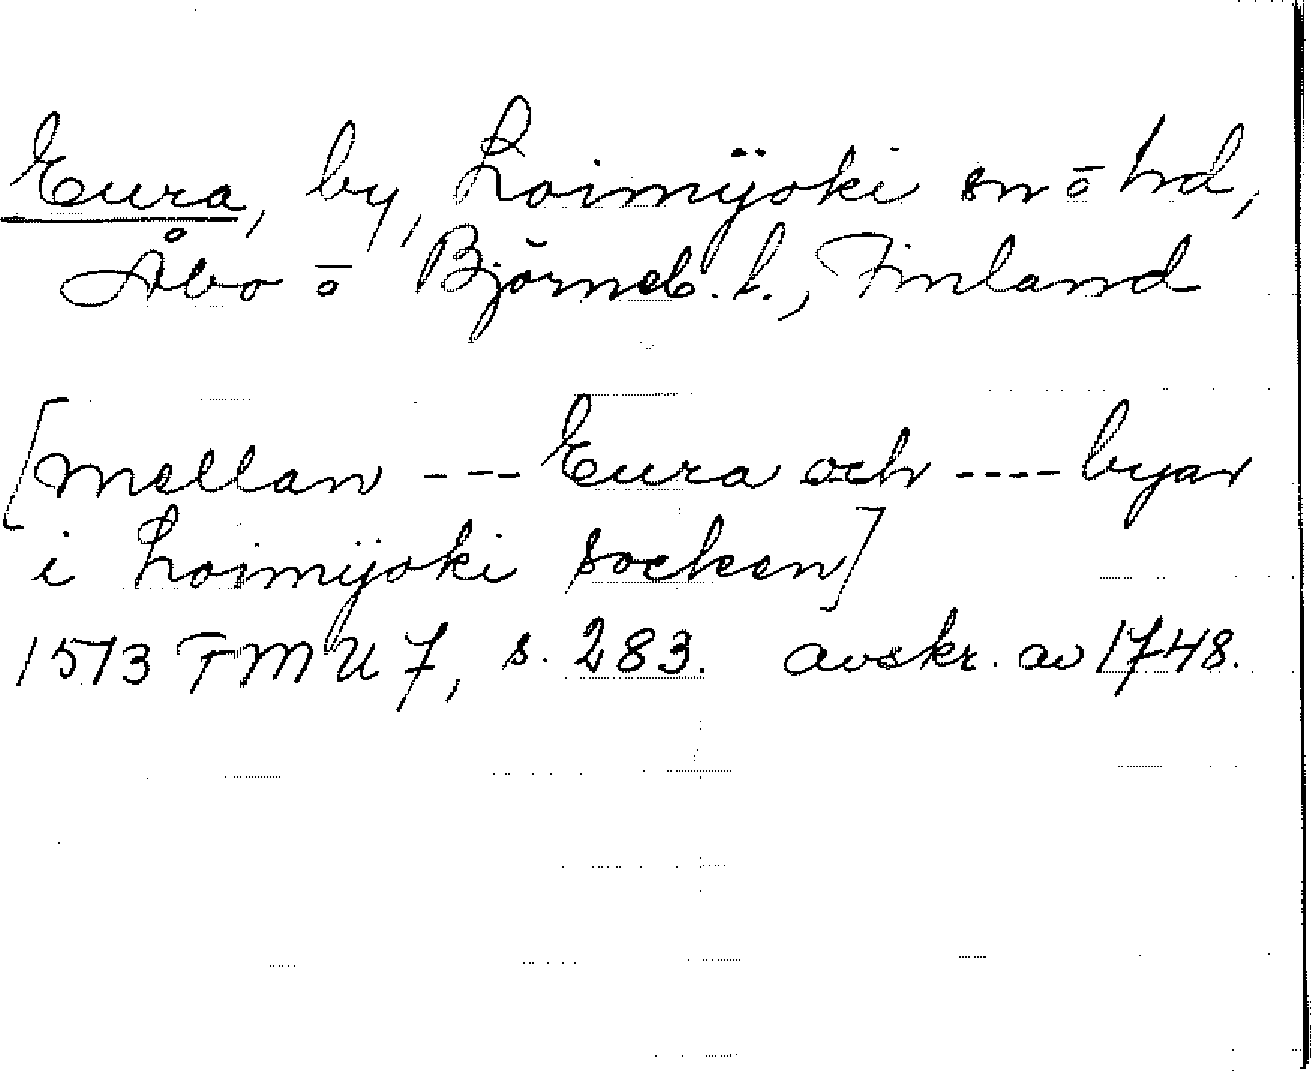 Eura, by, Loimijoki sn o hd,
Åbo o Björneb. l., Finland
[mellan --- Eura och ---- byar
i Loimijoki socken]
1573 FMU 7, s. 283. avskr. av 1748.